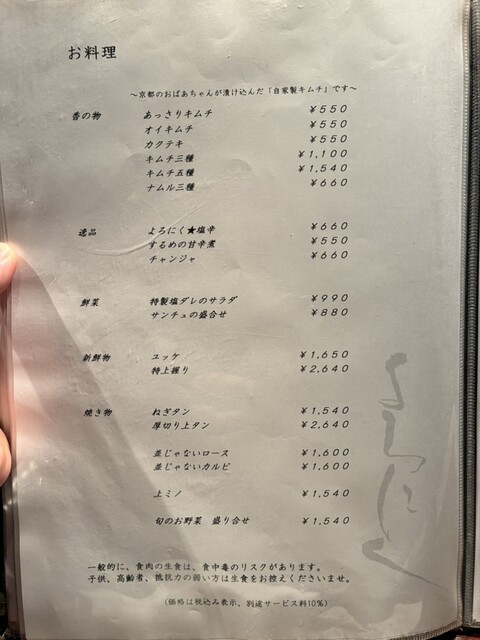 お料理
～京都のおばあちゃんが漬け込んだ「自家製キムチ」です～
香の物 あっさりキムチ ￥５５０
オイキムチ ￥５５０
カクテキ ￥５５０
キムチ三種 ￥１，１００
キムチ五種 ￥１，５４０
ナムル三種 ￥６６０
逸品 よろにく★塩辛 ￥６６０
するめの甘辛煮 ￥５５０
チャンジャ ￥６６０
鮮菜 特製塩ダレのサラダ ￥９９０
サンチュの盛合せ ￥８８０
新鮮物 ユッケ ￥１，６５０
特上握り ￥２，６４０
焼き物 ねぎタン ￥１，５４０
厚切り上タン ￥２，６４０
並じゃないロース ￥１，６００
並じゃないカルビ ￥１，６００
上ミノ ￥１，５４０
旬のお野菜 盛り合せ ￥１，５４０
よろにく
一般的に、食肉の生食は、食中毒のリスクがあります。
子供、高齢者、抵抗力の弱い方は生食をお控えくださいませ。
（価格は税込み表示、別途サービス料10％）